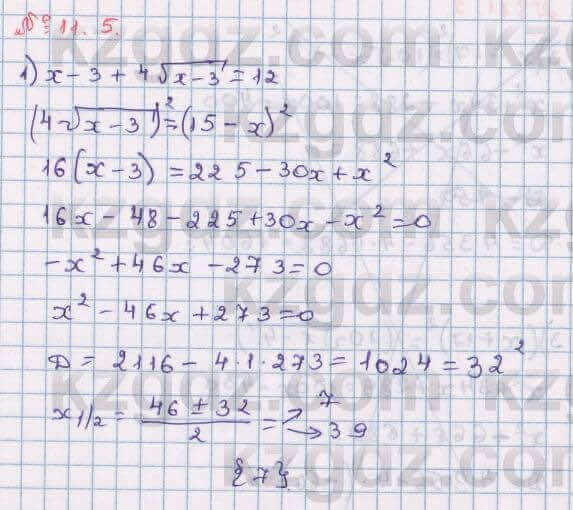 № 11.5.
1) x - 3 + 4√(x-3) = 12
(4√(x-3))² = (15 - x)²
16(x - 3) = 225 - 30x + x²
16x - 48 - 225 + 30x - x² = 0
-x² + 46x - 273 = 0
x² - 46x + 273 = 0
D = 2116 - 4·1·273 = 1024 = 32²
x1/2 = (46 ± 32)/2 = ↗ 7 → 39
{7}
kzgdz.com